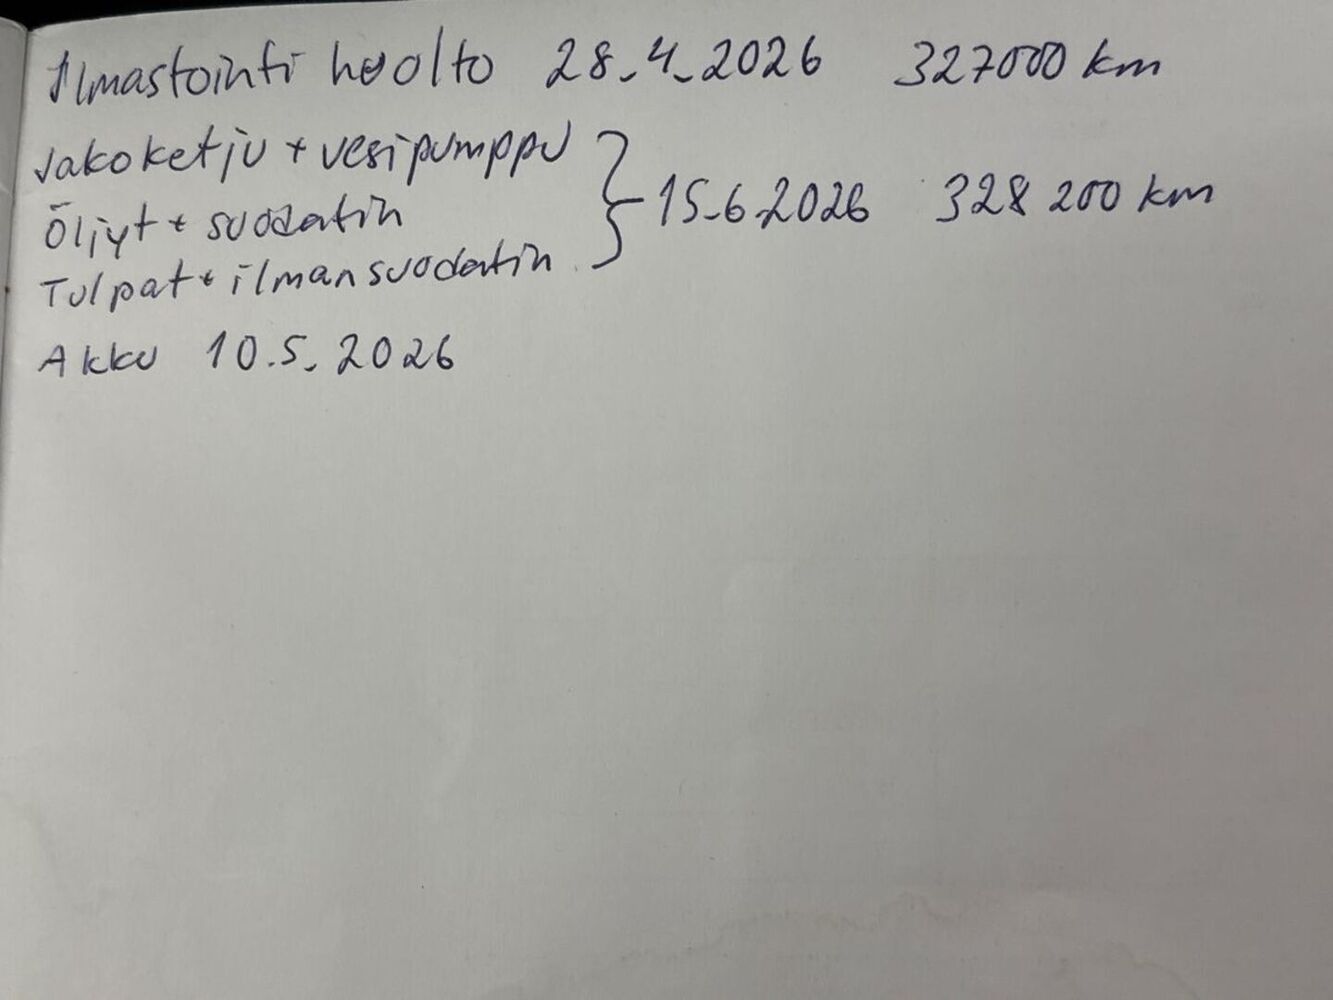 Ilmastointi huolto 28.4.2026 327000 km
Jakoketju + vesipumppu
Öljyt + suodatin
Tulpat + ilmansuodatin
15.6.2026 328 200 km
Akku 10.5.2026